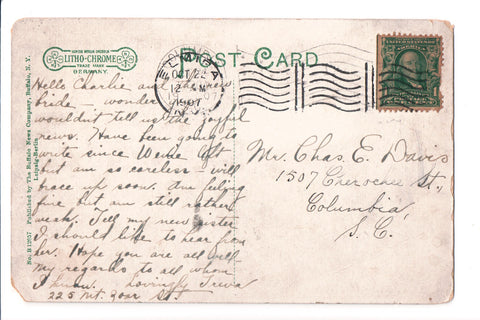 LITHO-CHROME
TRADE MARK
GERMANY.
POST CARD
ELMIRA
OCT 22
12 M
1907
N.Y.
Hello Charlie and the new
bride – wonder you
wouldn't tell us the joyful
news. Have been going to
write since left
but am so careless – will
brace up soon. Am feeling
fine but am still rather
weak. Tell my new sister
I should like to hear from
her. Hope you are all well
my regards to all whom
I know. Lovingly
225 Mt. Zoar St.
Mr. Chas. E. Davis
1507 Cherokee St.,
Columbia,
S. C.
No. B 12957 Published by The Buffalo News Company, Buffalo, N. Y.
Leipzig-Berlin